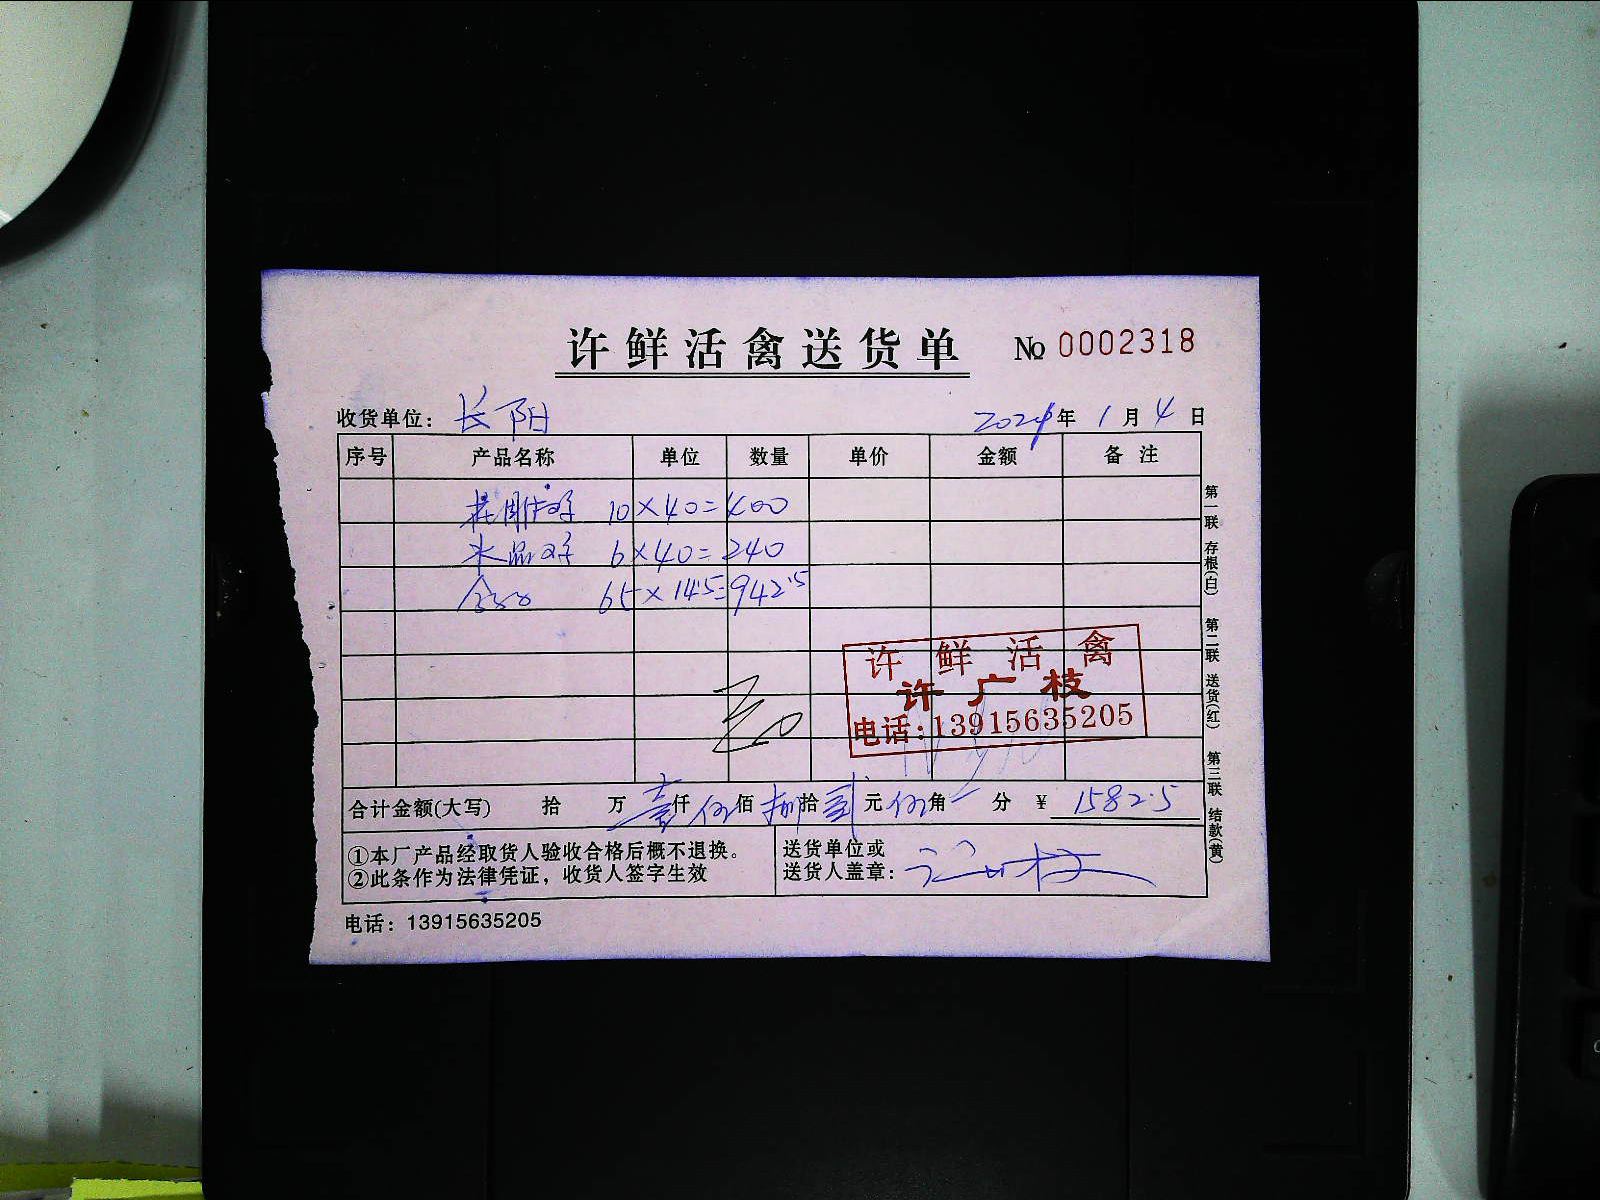 许鲜活禽送货单 № 0002318
收货单位： 长阳 2024年 1月 4日
序号 产品名称 单位 数量 单价 金额 备注
10×40=400
水晶 6×40=240
65×14.5=942.5
许鲜活禽
许广枝
电话:13915635205
合计金额(大写) 拾 万 壹仟 伍佰 捌拾 贰元 伍角 分 ¥ 1582.5
①本厂产品经取货人验收合格后概不退换。
②此条作为法律凭证，收货人签字生效
送货单位或
送货人盖章：
电话：13915635205
第一联 存根(白) 第二联 送货(红) 第三联 结款(黄)